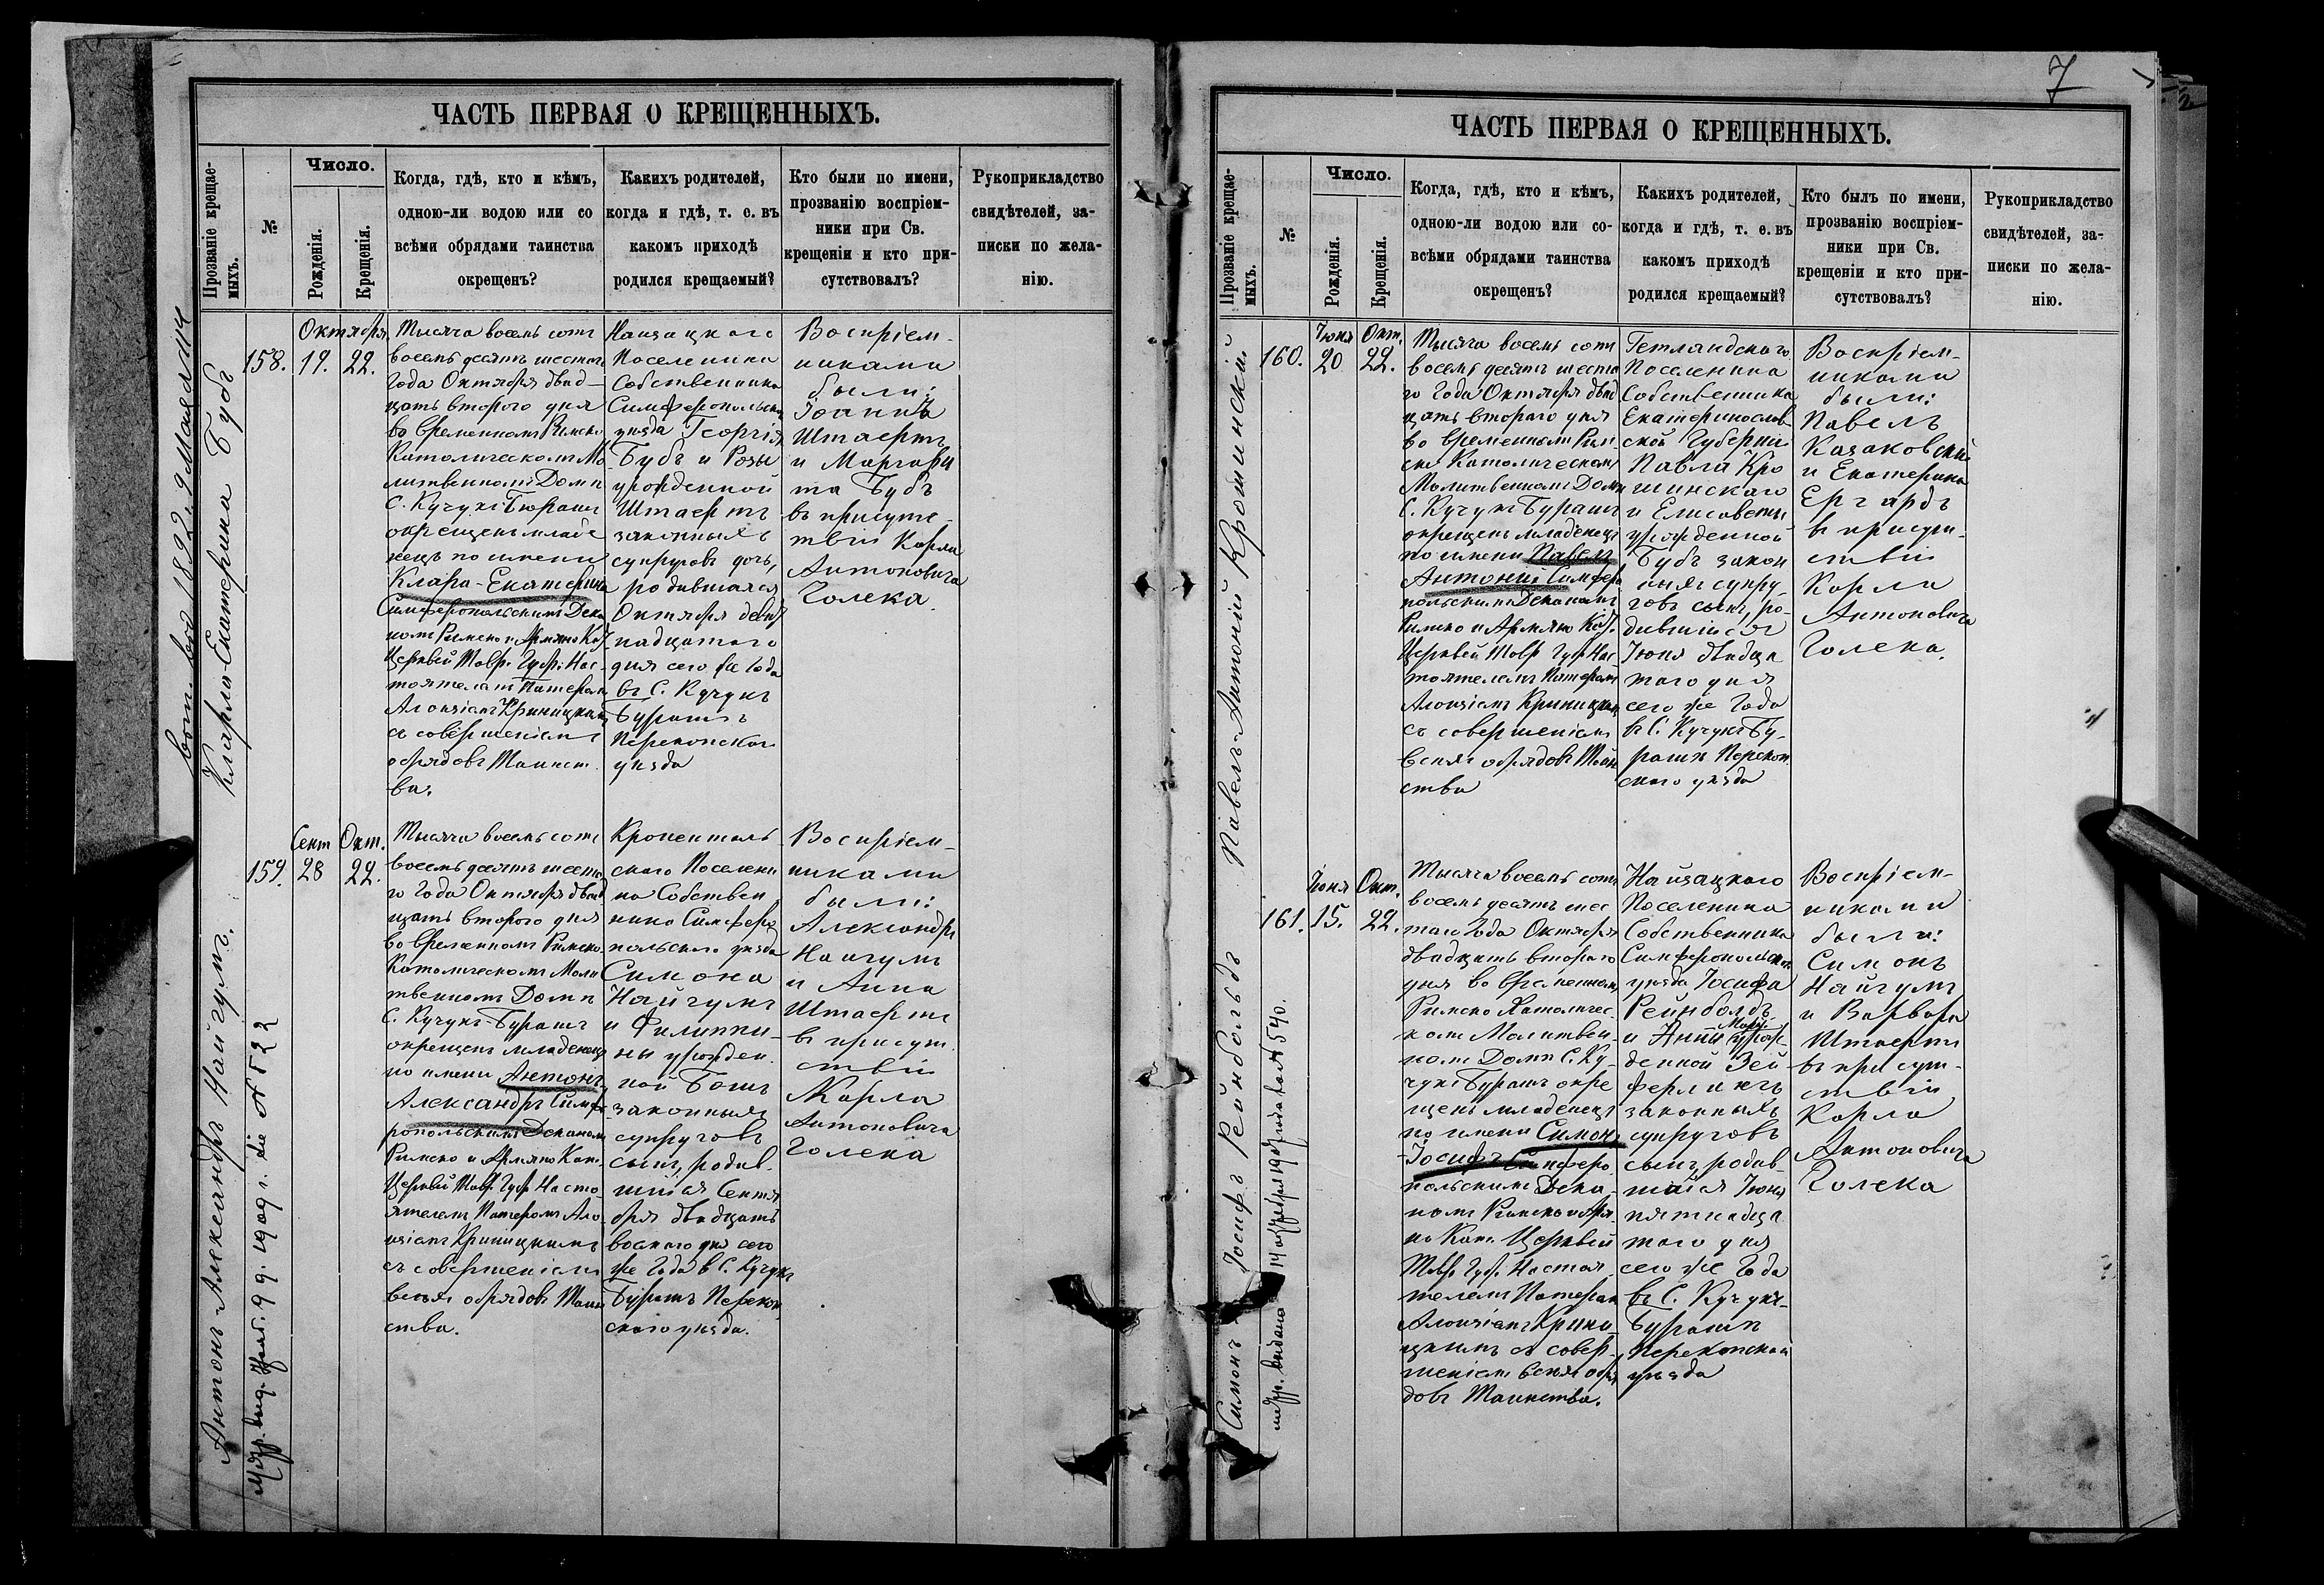 ЧАСТЬ ПЕРВАЯ О КРЕЩЕННЫХЪ.
Прозваніе крещае-
мыхъ.
№
Число.
Рожденія.
Крещенія.
Когда, гдѣ, кто и кѣмъ,
одною-ли водою или со
всѣми обрядами таинства
окрещенъ?
Какихъ родителей,
когда и гдѣ, т. е. въ
какомъ приходѣ
родился крещаемый?
Кто были по имени,
прозванію воспріем-
ники при Св.
крещеніи и кто при-
сутствовалъ?
Рукоприкладство
свидѣтелей, за-
писки по жела-
нію.
Клара-Екатерина Бубъ
158.
Октября
19.
22.
Тысяча восемь сотъ
восемьдесятъ шестого
Года Октября двад-
цать второго дня
во временномъ Римско
Католическомъ Мо
литвенномъ Домѣ
С. Кучукъ Бюрашъ
окрещенъ младе
нецъ по имени
Клара-Екатерина
Симферопольскимъ Дека
номъ Римско и Армяно Каѳ.
Церквей Тавр. Губр. Нас-
тоятелемъ Патеромъ
Алоизіемъ Криницкимъ
съ совершеніемъ
обрядовъ Таинст
ва.
Поселенина
Собственника
Симферопольскаго
уѣзда Георгія
Бубъ и Розы
урожденной
Штаертъ
законныхъ
супруговъ дочь,
родившаяся
Октября девят
надцатого
дня сего же Года
въ С. Кучукъ
Бурашъ
Перекопскаго
уѣзда
Воспріем-
никами
были:
Іоаннъ
Штаертъ
и Маргари
та Бубъ
въ присутс-
твіи Карла
Антоновича
Голека.
Антонъ-Александръ Найгумъ.
Метр. выд. 9 д. 1909 г. № 522
159.
Сент
28
Окт.
22.
Тысяча восемь сотъ
восемьдесятъ шесто
го Года Октября двад
цать второго дня
во временномъ Римско
Католическомъ Моли
твенномъ Домѣ
С. Кучукъ-Бурашъ
окрещенъ младенецъ
по имени Антонъ
Александръ Симфе
ропольскимъ Деканомъ
Римско и Армяно Кат.
Церквей Тавр. Губр. Насто
ятелемъ Патеромъ Ало
изіемъ Криницкимъ
съ совершеніемъ
всѣхъ обрядовъ Таин
ства.
Кроненталь
скаго Поселени
на Собствен
ника Симферо
польскаго уѣзда
Симона
Найгумъ
и Филиппи-
ны урожден.
ной Бошъ
законныхъ
супруговъ
сынъ, родив-
шійся Сентя
бря двадцать
восьмого дня сего
же Года въ С. Кучукъ
Бурашъ Перекоп
скаго уѣзда.
Воспріем-
никами
были:
Александръ
Найгумъ
и Анна
Штаертъ
въ присут
ствіи
Карла
Антоновича
Голека
7
ЧАСТЬ ПЕРВАЯ О КРЕЩЕННЫХЪ.
Прозваніе крещае-
мыхъ.
№
Число.
Рожденія.
Крещенія.
Когда, гдѣ, кто и кѣмъ,
одною-ли водою или со-
всѣми обрядами таинства
окрещенъ?
Какихъ родителей,
когда и гдѣ, т. е. въ
какомъ приходѣ
родился крещаемый?
Кто былъ по имени,
прозванію воспріем-
ники при Св.
крещеніи и кто при-
сутствовалъ?
Рукоприкладство
свидѣтелей, за-
писки по жела-
нію.
Павелъ-Антоній Крошинскій
160.
Іюня
20
Окт.
22.
Тысяча восемь сотъ
восемьдесятъ шесто
го Года Октября двад
цать второго дня
во временномъ Рим
ско Католическомъ
Молитвенномъ Домѣ
С. Кучукъ Бурашъ
окрещенъ младенецъ
по имени Павелъ
Антоній Симферо
польскимъ Деканомъ
Римско и Армяно Каѳ.
Церквей Тавр Губр Нас-
тоятелемъ Патеромъ
Алоизіемъ Криницкимъ
съ совершеніемъ
всѣхъ обрядовъ Таин
ства
Гетландскаго
Поселенина
Собственника
Екатеринослав
ской Губерніи
Павла Кро
шинскаго
и Елисаветы
урожденной
Бубъ закон
ныхъ супру-
говъ сынъ, ро-
дившійся
Іюня двадца
таго дня
сего же Года
въ С. Кучукъ Бу-
рашъ Перекоп
скаго уѣзда
Воспріем-
никами
были:
Павелъ
Казаковскій
и Екатерина
Ергардъ
въ присут-
ствіи
Карла
Антоновича
Голека.
Симонъ Іосифъ Рейнбольдъ
161.
Іюня
15.
Окт.
22.
Тысяча восемь сотъ
восемьдесятъ шес
таго Года Октября
двадцать второго
дня во временномъ
Римско Католичес-
комъ Молитвен-
номъ Домѣ С. Ку-
чукъ Бурашъ окре
щенъ младенецъ
по имени Симонъ
-Іосифъ Симферо
польскимъ Дека-
номъ Римско и Армя-
но Кат. Церквей
Тавр. Губр. Настоя-
телемъ Патеромъ
Алоизіемъ Крини
цкимъ съ совер-
шеніемъ всѣхъ обря
довъ Таинства.
Найзацкаго
Поселенина
Собственника
Симферопольскаго
уѣзда Іосифа
Рейнболдъ
и Анны Марі. урож-
денной Зей
ферлингъ
законныхъ
супруговъ
сынъ, родив-
шійся Іюня
пятнадца
таго дня
сего же Года
въ С. Кучукъ-
Бурашъ
Перекопскаго
уѣзда
Воспріем-
никами
были:
Симонъ
Найгумъ
и Варвара
Штаертъ
въ присут-
ствіи
Карла
Антоновича
Голека